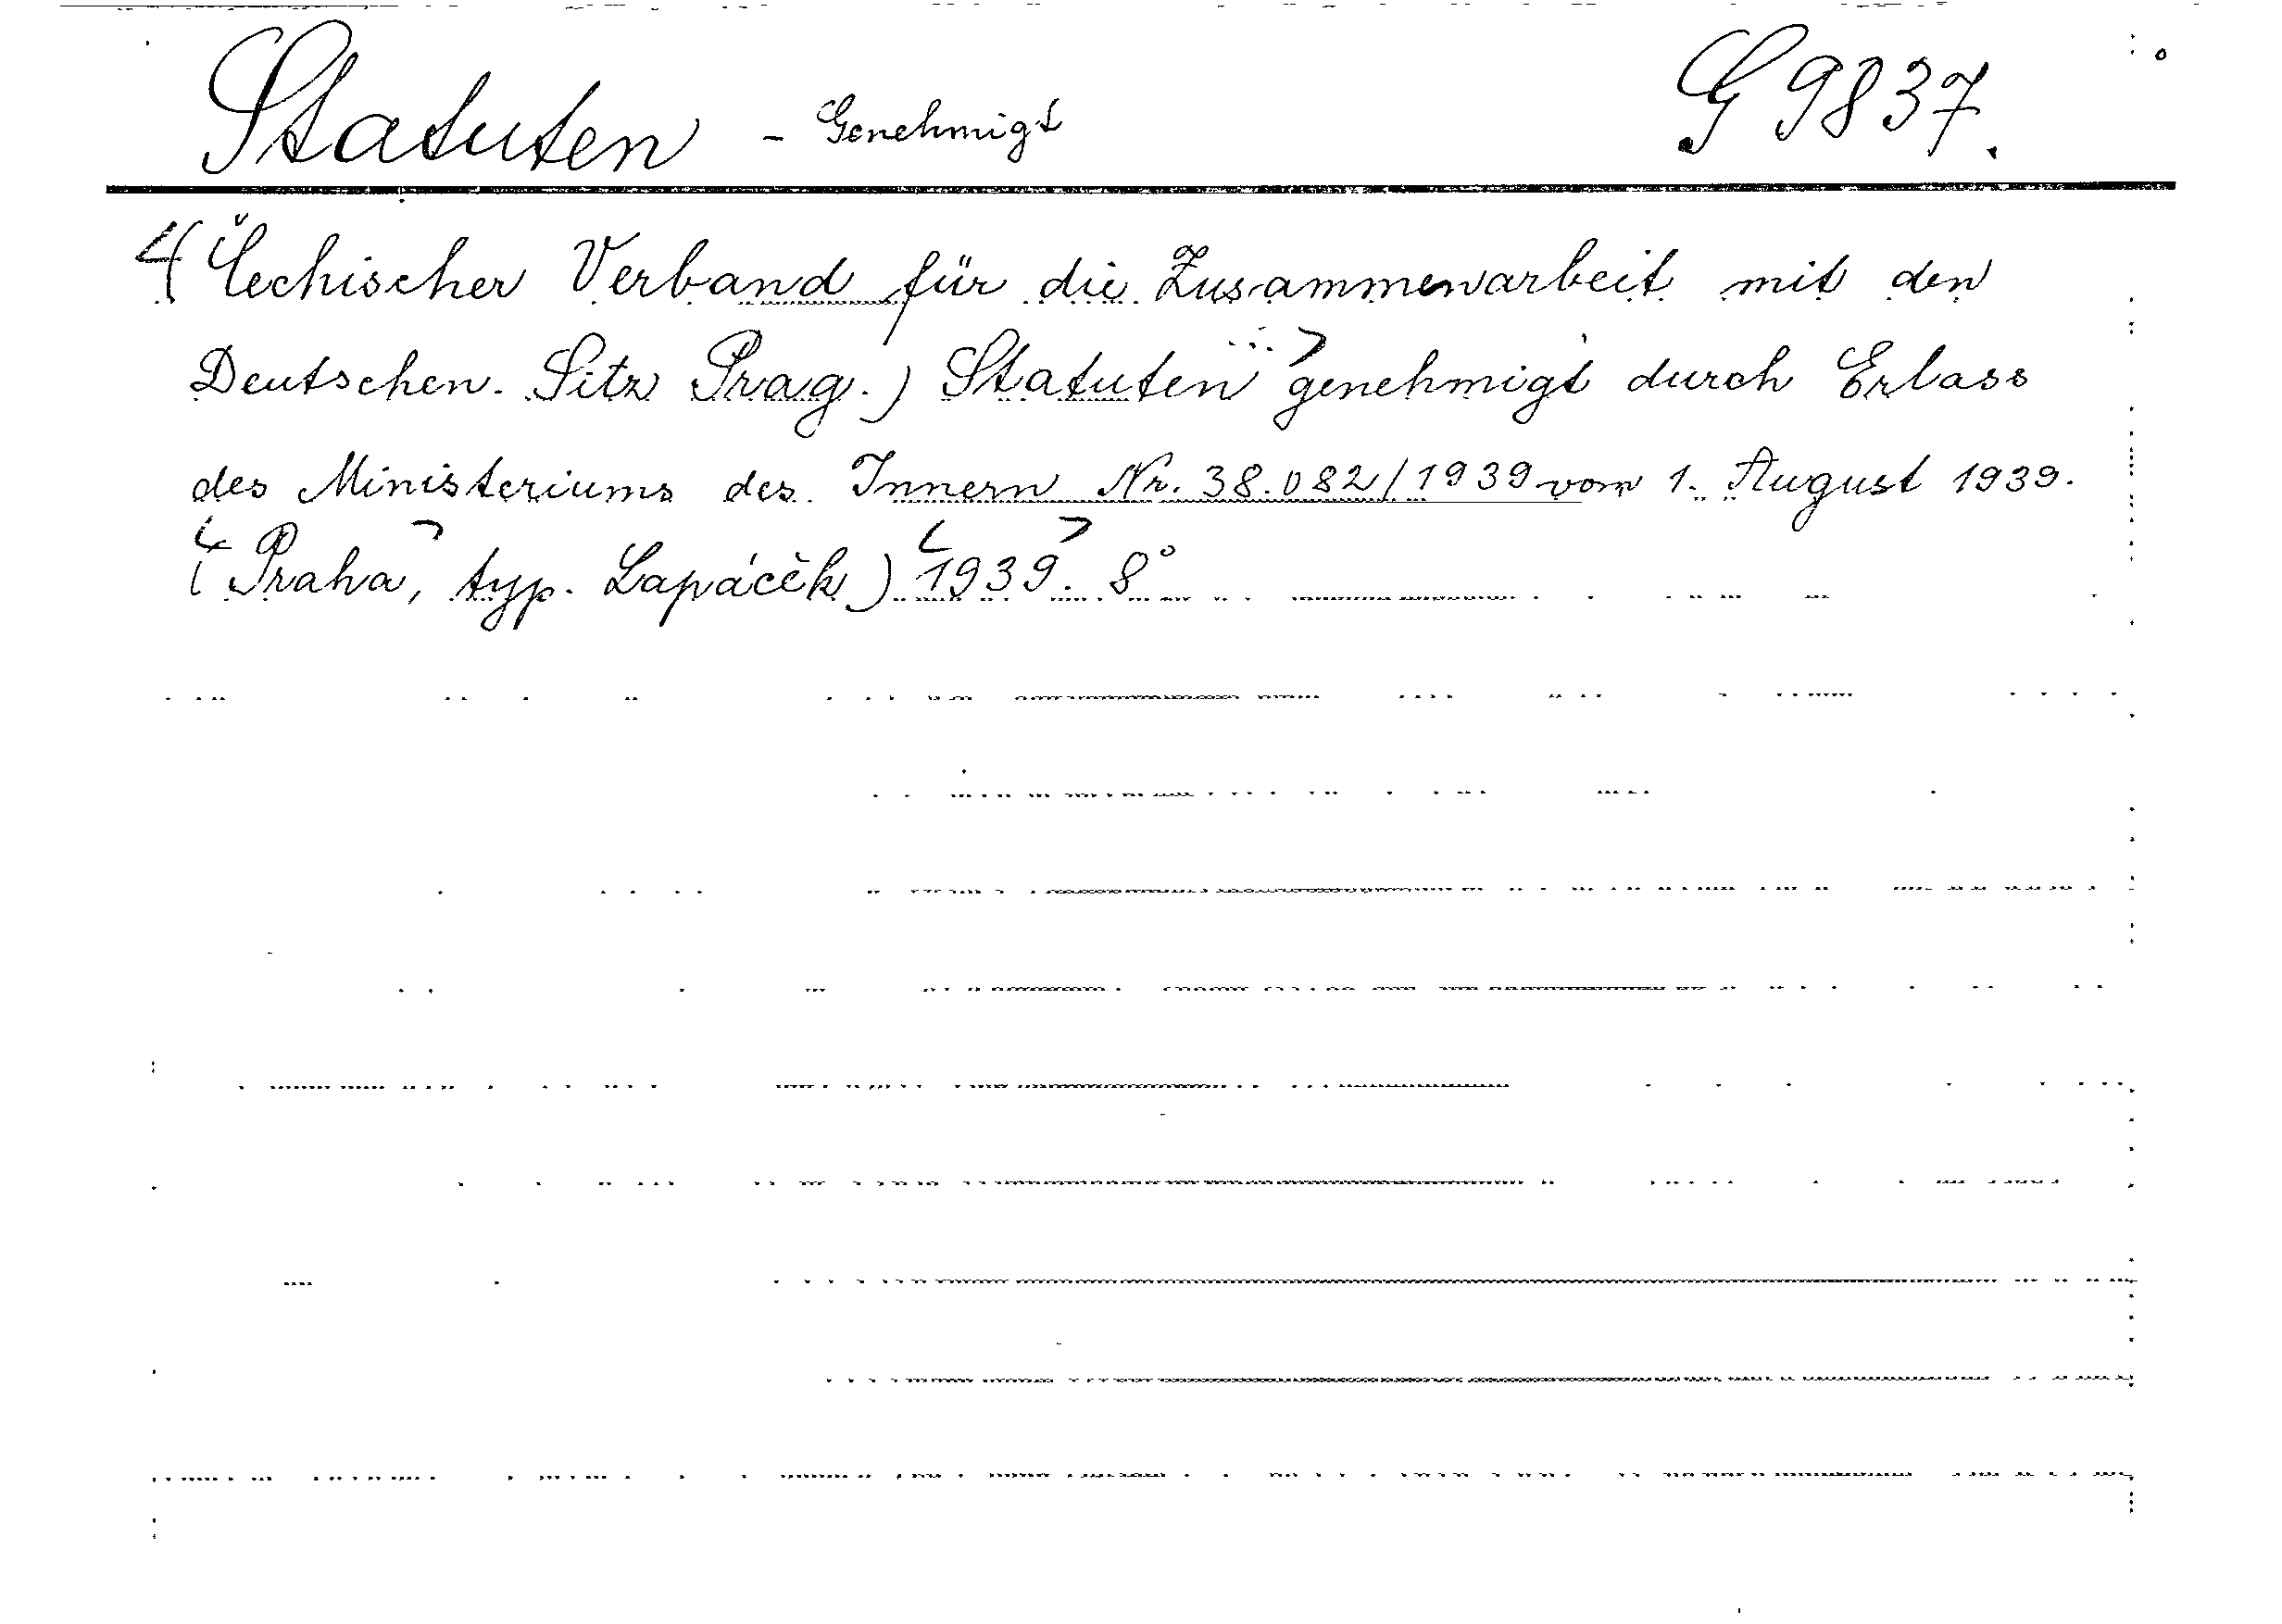 Statuten - Genehmigt G 9837.
(Čechischer Verband für die Zusammenarbeit mit den
Deutschen. Sitz Prag.) Statuten genehmigt durch Erlass
des Ministeriums des Innern Nr. 38.082/1939 vom 1. August 1939.
(Praha, typ. Lapáček) 1939. 8°